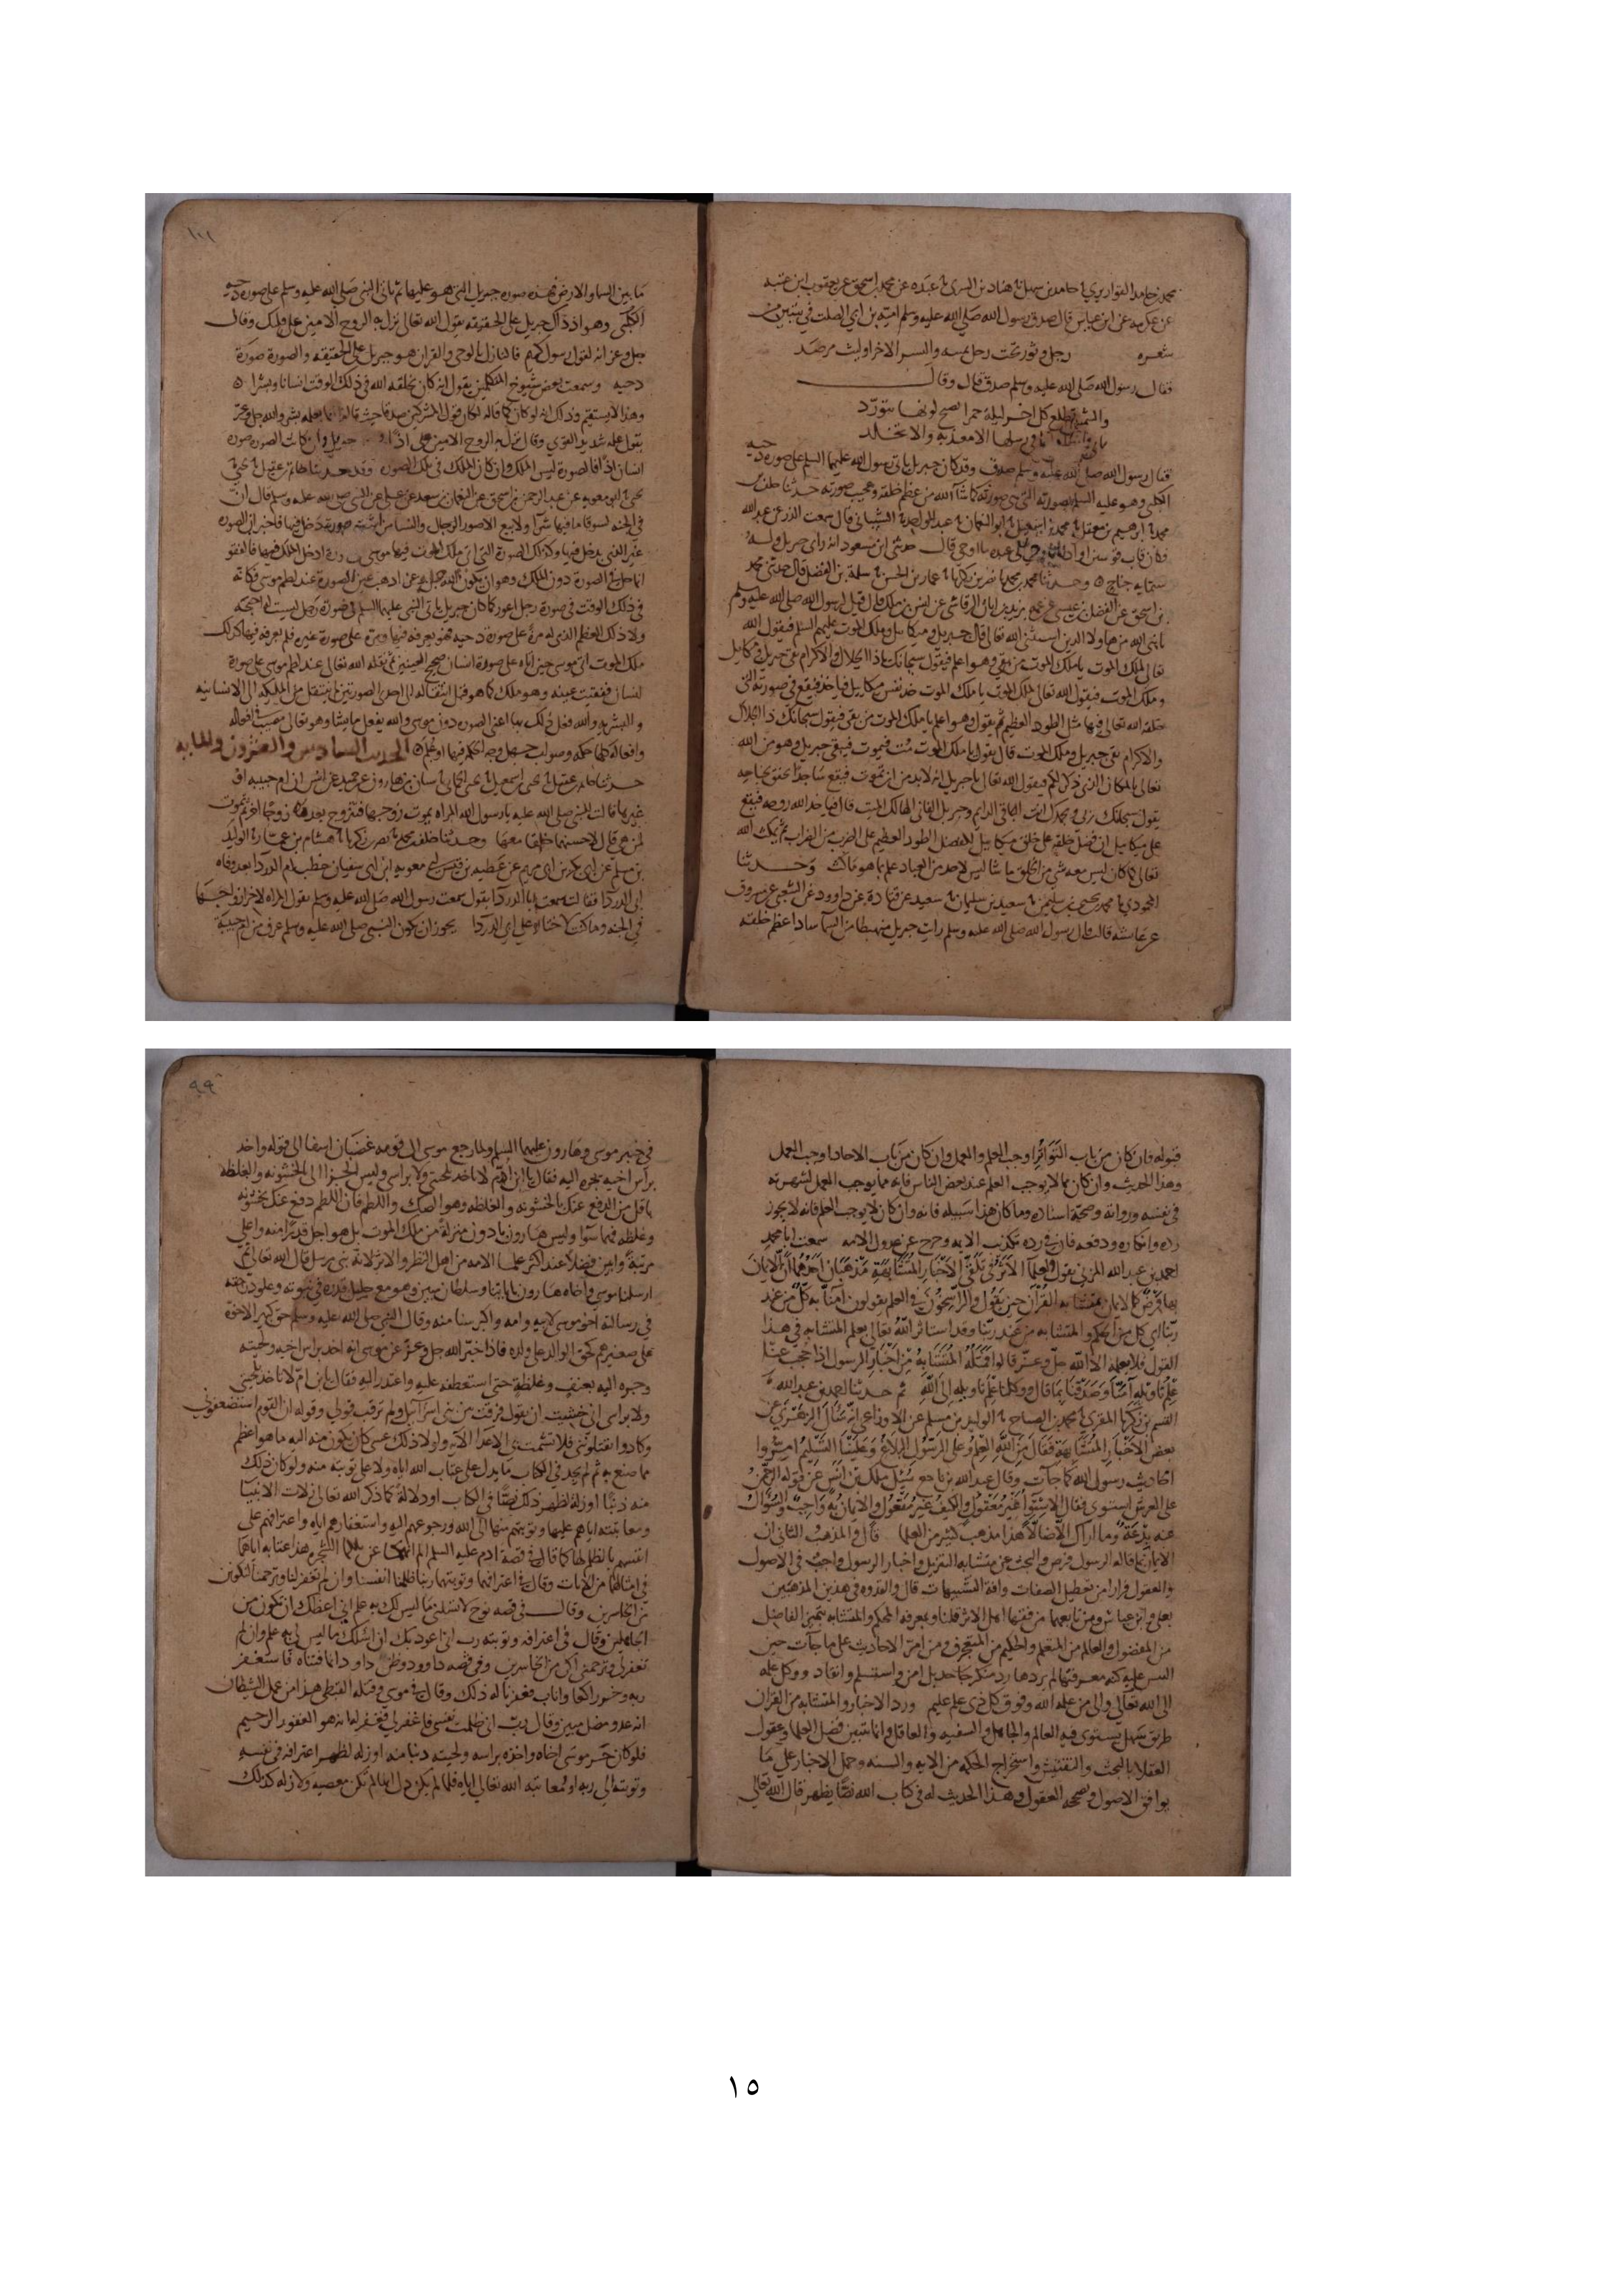 محمد بن حامد القواريري حامد بن سهل هناد بن السري عبده عن محمد بن اسحق عن يعقوب ابن عتبه
عن عكرمه عن ابن عباس قال صدق رسول الله صلى الله عليه وسلم اميه بن ابي الصلت في بيتين من
شعره رجل وثور تحت رجل يمينه والنسر الاخر وليث مرصد
فقال رسول الله صلى الله عليه وسلم صدق قال وقال
والشمس تطلع كل اخر ليلة حمرا يصبح لونها يتورد
الا معذبه والا تجلد
فقال رسول الله صلى الله عليه وسلم صدق وقد كان جبريل ياتي رسول الله عليهما السلم على صورة دحيه
الكلبي وهو عليه السلم
محمد ابرهيم بن معقل محمد بن اسمعيل ابو النعمان عبد الواحد الشيباني قال سمعت الذر عن عبد الله
فكان قاب قوسين او ادنى فاوحى الى عبده ما اوحى قال حدثني ابن مسعود انه راى جبريل وله
ستمايه جناح
بن اسحق عن الفضل بن عيسى عن عمه يزيد بن ابان الرقاشي عن انس بن ملك قال قيل لرسول الله صلى الله عليه وسلم
يا نبي الله من هاولا الذين استثنى الله تعالى قال جبريل وميكاييل وملك الموت عليهم السلم فيقول الله
تعالى لملك الموت يا ملك الموت من بقي وهو اعلم فيقول سبحانك يا ذا الجلال والاكرام بقي جبريل وميكاييل
وملك الموت فيقول الله تعالى لملك الموت يا ملك الموت خذ نفس ميكاييل فياخذ فيقع في صورته التي
خلقه الله تعالى فيها مثل الطود العظيم ثم يقول وهو اعلم يا ملك الموت من بقي فيقول سبحانك ذا الجلال
والاكرام بقي جبريل وملك الموت قال يقول يا ملك الموت مت فيموت فيبقى جبريل وهو من الله
تعالى بالمكان الذي ذكر لكم فيقول الله تعالى يا جبريل انه لا بد من ان تموت فيقع ساجدا يخفق بجناحيه
يقول سبحانك ربي وبحمدك انت الباقي الدايم وجبريل الفاني الهالك الميت قال فياخذ الله روحه فيقع
على ميكاييل ان فضل خلقه على خلق ميكاييل كفضل الطود العظيم على الظرب من الظراب ثم يمكث الله
تعالى كما كان ليس معه شي من الخلق ما شا ليس لاحد من العباد علم بما هو مالك وحدثنا
المحمودي محمد بن يحيى بن سليمن سعيد بن سليمان سعيد عن قتادة عن داوود عن الشعبي عن مسروق
عن عايشه قالت قال رسول الله صلى الله عليه وسلم رايت جبريل منهبطا من السما سادا عظم خلقه
١٠١
ما بين السما والارض فهذه صورة جبريل التي هو عليها ثم ياتي النبي صلى الله عليه وسلم على صورة دحيه
الكلبي وهو اذ ذاك جبريل على الحقيقه يقول الله تعالى نزل به الروح الامين على قلبك وقال
جل وعز انه لقول رسول كريم فالنازل بالوحي والقران هو جبريل على الحقيقه والصورة صورة
دحيه وسمعت بعض شيوخ المتكلمين يقول انه كان يخلقه الله في ذلك الوقت انسانا وبشرا
وهذا لا يستقيم وذلك انه لو كان كما قاله لكان قول المشركين صدقا حيث قالوا انما يعلمه بشر والله جل وعز
يقول علمه شديد القوي وقال نزل به الروح الامين
انسان اذا فالصورة ليس الملك وان كان الملك في تلك الصورة
يحيى ابو معويه عن عبد الرحمن بن اسحق عن النعمان بن سعد عن علي عن النبي صلى الله عليه وسلم قال ان
في الجنه لسوقا ما فيها شرا ولا بيع الا صور الرجال والنسا من اشتهى صورة دخل فيها فاخبر ان الصوره
غير الذي يدخل فيها وكذلك الصورة التي اتى ملك الموت فيها موسى
في ذلك الوقت في صورة رجل اعور كما كان جبريل ياتي النبي عليهما السلم في صورة رجل ليست له اجنحه
ملك الموت اتى موسى حين اتاه على صورة انسان صحيح العينين ثم نقله الله تعالى عند لطم موسى على صورة
انسان ففقيت عينه وهو ملك كما هو قبل انتقاله الى احدى الصورتين لم ينتقل من الملكيه الى الانسانيه
والبشريه والله فعل ذلك بها اعني الصورة دون موسى والله يفعل ما يشا وهو تعالى مصيب في افعاله
وافعاله كلها حكمه وصواب جهل وجه الحكم فيها او علم الحديث السادس والعشرون والمايه
حدثنا حاتم بن عقيل يحيى بن اسمعيل يحيى الحماني سنان بن هارون عن حميد عن انس ان ام حبيبه او
غيرها قالت للنبي صلى الله عليه يا رسول الله المراه يموت زوجها فتتزوج بعده زوجا اخر ثم تموت
لمن هي قال لاحسنهما خلقا معها وحدثنا خلف بن محمد نصر بن زكريا هشام بن عمار الوليد
بن مسلم عن ابي بكر بن ابي مريم عن عطيه بن قيس ان معويه ابن ابي سفيان خطب ام الدردا بعد وفاه
ابي الدردا فقالت سمعت ابا الدردا يقول سمعت رسول الله صلى الله عليه وسلم يقول المراه لاخر ازواجها
في الجنه وما كنت لاختار على ابي الدردا يجوز ان يكون النبي صلى الله عليه وسلم عرف من ام حبيبة
قبوله فان كان من باب التواتر اوجب العلم والعمل وان كان من باب الاحاد اوجب العمل
وهذا الحديث وان كان مما لا يوجب العلم عند بعض الناس فانه مما يوجب العمل لشهرته
في نفسه ورواته وصحة اسناده وما كان هذا سبيله فانه وان كان لا يوجب العلم فانه لا يجوز
رده وانكاره ودفعه فان في رده تكذيب الايه وجرح عن عدول الامه سمعت ابا محمد
احمد بن عبد الله المزني يقول لعلما الاثر في تلقي الاخبار المتشابهة مذهبان احدهما ان الايمان
بها فرض كالايمان بمتشابه القران حين يقول والراسخون في العلم يقولون امنا به كل من عند
ربنا اي كل من المحكم والمتشابه من عند ربنا وقد استاثر الله تعالى بعلم المتشابه في هذا
القول فلا يعلمه الا الله جل وعز قالوا فمثله المتشابه من اخبار الرسول اذا حجب عنا
علم تاويله امنا وصدقنا بما قال ووكلنا علم تاويله الى الله ثم حدثنا احمد بن عبد الله
القسم بن زكريا المقري محمد بن الصباح الوليد بن مسلم عن الاوزاعي انه سال الزهري عن
بعض الاخبار المتشابهة فقال من الله العلم وعلى الرسول البلاغ وعلينا التسليم امروا
احاديث رسول الله كما جات وقال عبد الله بن نافع سيل ملك بن انس عن قوله الرحمن
على العرش استوى فقال الاستوا غير معقول والكيف غير معقول والايمان به واجب والسوال
عنه بدعة وما اراك الا ضالا هذا مذهب كثير من العلما قال والمذهب الثاني ان
الايمان بما قاله الرسول فرض والبحث عن متشابه التنزيل واخبار الرسول واجب في الاصول
والعقول فرارا من تعطيل الصفات وافة التشبيهات قال والقدوه في هذين المذهبين
بعلي وابن عباس ومن تابعهما من فقها اهل الاثر قلنا وبمعرفه المحكم والمتشابه يتميز الفاضل
من المفضول والعالم من المتعلم والحكيم من المتعجرف ومن امر الاحاديث على ما جات حين
التبس عليه كنه معرفتها لم يردها رد منكر جاحد بل امن واستسلم وانقاد ووكل علمه
الى الله تعالى والى من علمه الله وفوق كل ذي علم عليم ورد الاخبار والمتشابه من القران
طريق سهل يستوي فيه العالم والجاهل والسفيه والعاقل وانما يتبين فضل العلما وعقول
العقلا بالبحث والتفتيش واستخراج الحكمه من الايه والسنه وحمل الاخبار على ما
يوافق الاصول وصححه العقول وهذا الحديث له في كتاب الله نظا يظهر قال الله تعالى
٩٩
في خبر موسى وهارون عليهما السلم ولما رجع موسى الى قومه غضبان اسفا الى قوله واخذ
براس اخيه يجره اليه فقال يا ابن ام لا تاخذ بلحيتي ولا براسي وليس الجر الى الخشونه والغلظه
باقل من الدفع عنك بالخشونه والغلظه وهو الصك واللطم فان اللطم دفع عنك بخشونه
وغلظه فهما سوا وليس هارون بادون منزلة من ملك الموت بل هو اجل قدرا منه واعلى
مرتبة وابين فضلا عند اكثر علما الامه من اهل النظر والاثر لانه نبي مرسل قال الله تعالى ثم
ارسلنا موسى واخاه هارون باياتنا وسلطان مبين وهو مع جليل قدره في نبوته وعلو درجته
في رسالته اخو موسى لابيه وامه واكبر سنا منه وقال النبي صلى الله عليه وسلم حق كبير الاخوة
على صغيرهم كحق الوالد على ولده فاذا خبر الله جل وعز عن موسى انه اخذ براس اخيه ولحيته
وجره اليه بعنف وغلظة حتى استعطفه عليه واعتذر اليه فقال يا بن ام لا تاخذ بلحيتي
ولا براسي اني خشيت ان يقول فرقت بين بني اسرآيل ولم ترقب قولي وقوله ان القوم استضعفوني
وكادوا يقتلونني فلا تشمت بي الاعدا الاية ولولا ذلك عسى كان يكون منه اليه ما هو اعظم
مما صنع به ثم لم نجد في الكتاب ما يدل على عتاب الله اياه ولا على توبته منه ولو كان ذلك
منه ذنبا او زلة لظهر ذلك نصا في الكتاب او دلالة كما ذكر الله تعالى زلات الانبيا
ومعاتبته اياهم عليها وتوبتهم منها الى الله ورجوعهم اليه واستغفارهم اياه واعترافهم على
انفسهم بالظلم لها كما قال في قصة ادم عليه السلم الم انهكما عن تلكما الشجره هذا عتابه اياهما
في امثالها من الايات وقال في اعترافهما وتوبتهما ربنا ظلمنا انفسنا وان لم تغفر لنا وترحمنا لنكونن
من الخاسرين وقال في قصه نوح لا تسلني ما ليس لك به علم اني اعظك ان تكون من
الجاهلين وقال في اعترافه وتوبته رب اني اعوذ بك ان اسلك ما ليس لي به علم وان لم
تغفر لي وترحمني اكن من الخاسرين وفي قصه داوود وظن داود انما فتناه فاستغفر
ربه وخر راكعا واناب فغفرنا له ذلك وقال في موسى وقتله القبطي هذا من عمل الشيطان
انه عدو مضل مبين وقال رب اني ظلمت نفسي فاغفر لي فغفر له انه هو الغفور الرحيم
فلو كان جر موسى اخاه واخذه براسه ولحيته ذنبا منه او زله لظهر اعترافه في نفسه
وتوبته الى ربه او معاتبة الله تعالى اياه فلما لم يكن دل انها لم تكن معصيه ولا زله كذلك
١٥